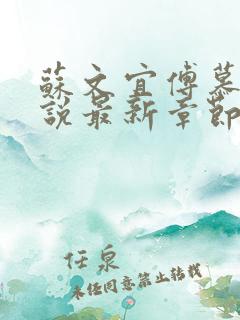 蘇文宜傅慕
說最新章節
任泉
未经同意禁止转载